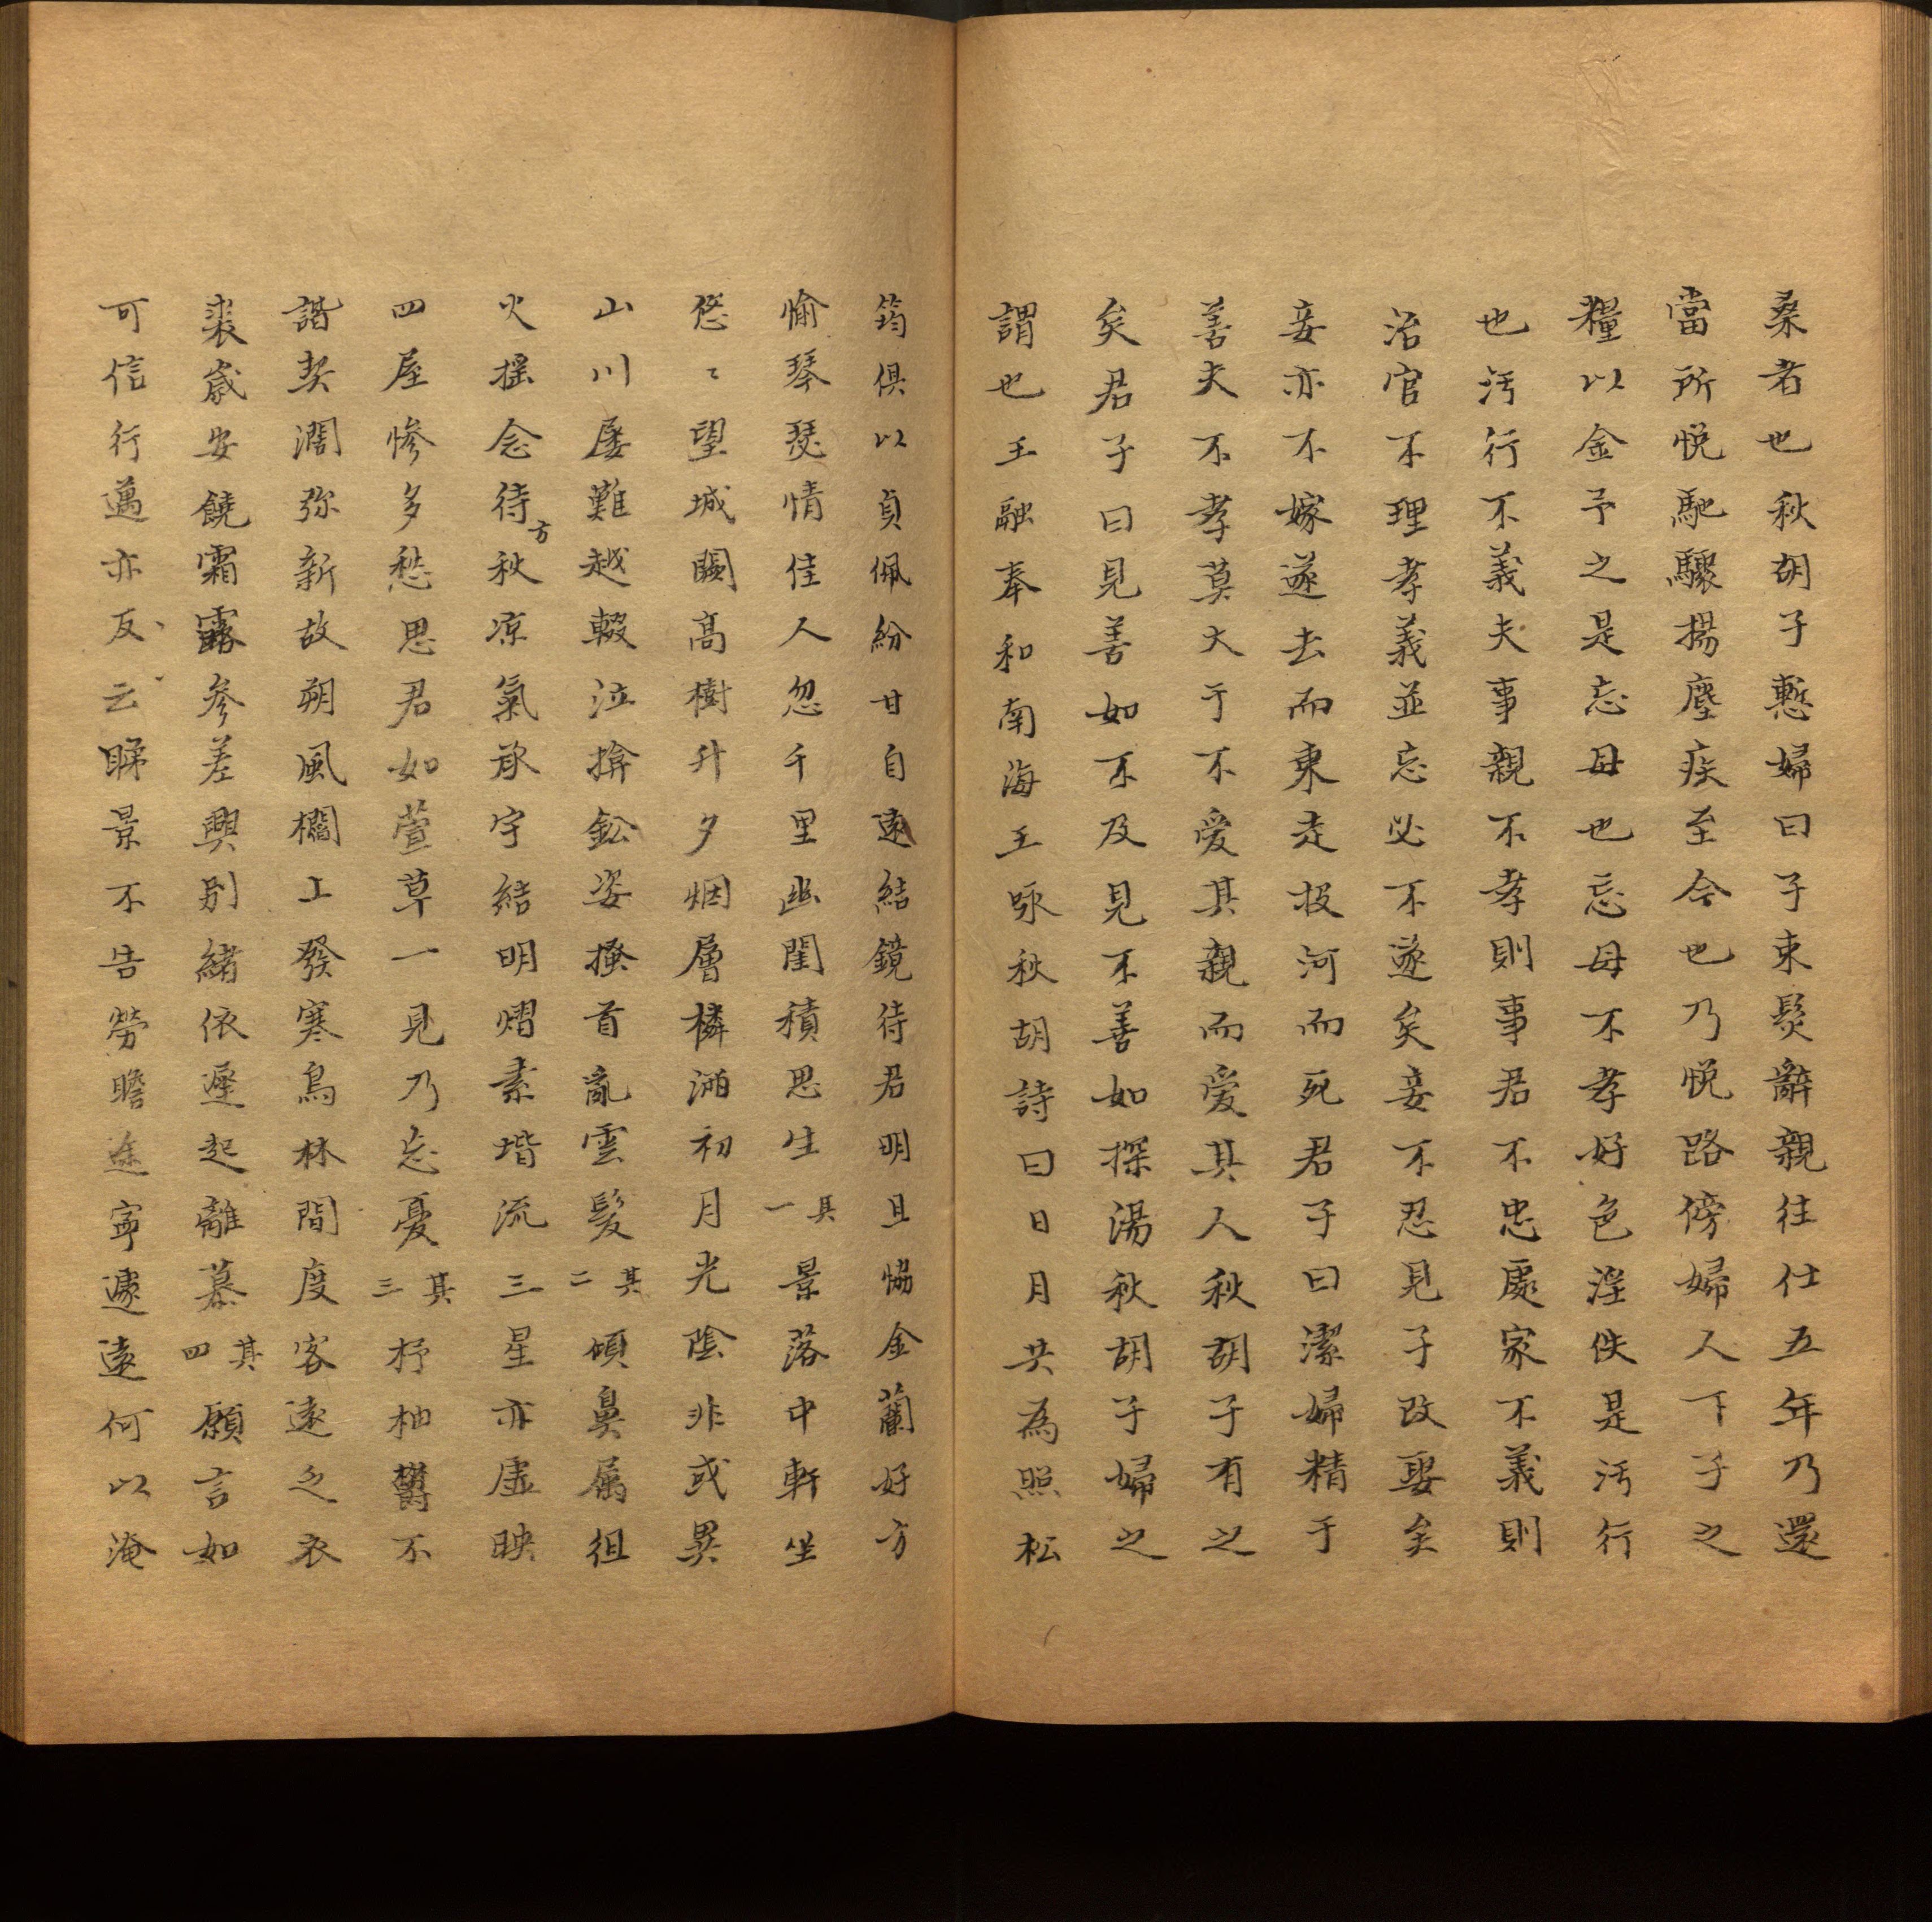 桑者也秋胡子慙婦曰子束髮辭親往仕五年乃還
當所悅馳驟揚塵疾至今也乃悅路傍婦人下子之
糧以金予之是忘母也忘母不孝好色淫佚是污行
也污行不義夫事親不孝則事君不忠處家不義則
治官不理孝義並忘必不遂矣妾不忍見子改娶矣
妾亦不嫁遂去而東走投河而死君子曰潔婦精于
善夫不孝莫大于不愛其親而愛其人秋胡子有之
矣君子曰見善如不及見不善如探湯秋胡子婦之
謂也王融奉和南海王咏秋胡詩曰日月共為照松
筠俱以貞佩紛甘自遠結鏡待君明且協金蘭好方
愉琴瑟情佳人忽千里幽閨積思生其一景落中軒坐
悠〻望城闕高樹升夕烟層樓滿初月光陰非或異
山川屢難越輟泣掩鉛姿搔首亂雲髮其二傾鼻属徂
火搖念待方秋凉氣承宇結明熠素堦流三星亦虛映
四屋慘多愁思君如萱草一見乃忘憂其三杼柚鬱不
諧契濶弥新故朔風櫚上發寒鳥林間度客遠乏衣
裘歲安饒霜露參差興別緒依遲起離慕其四願言如
可信行邁亦反云睇景不告勞瞻途寧邅遠何以淹